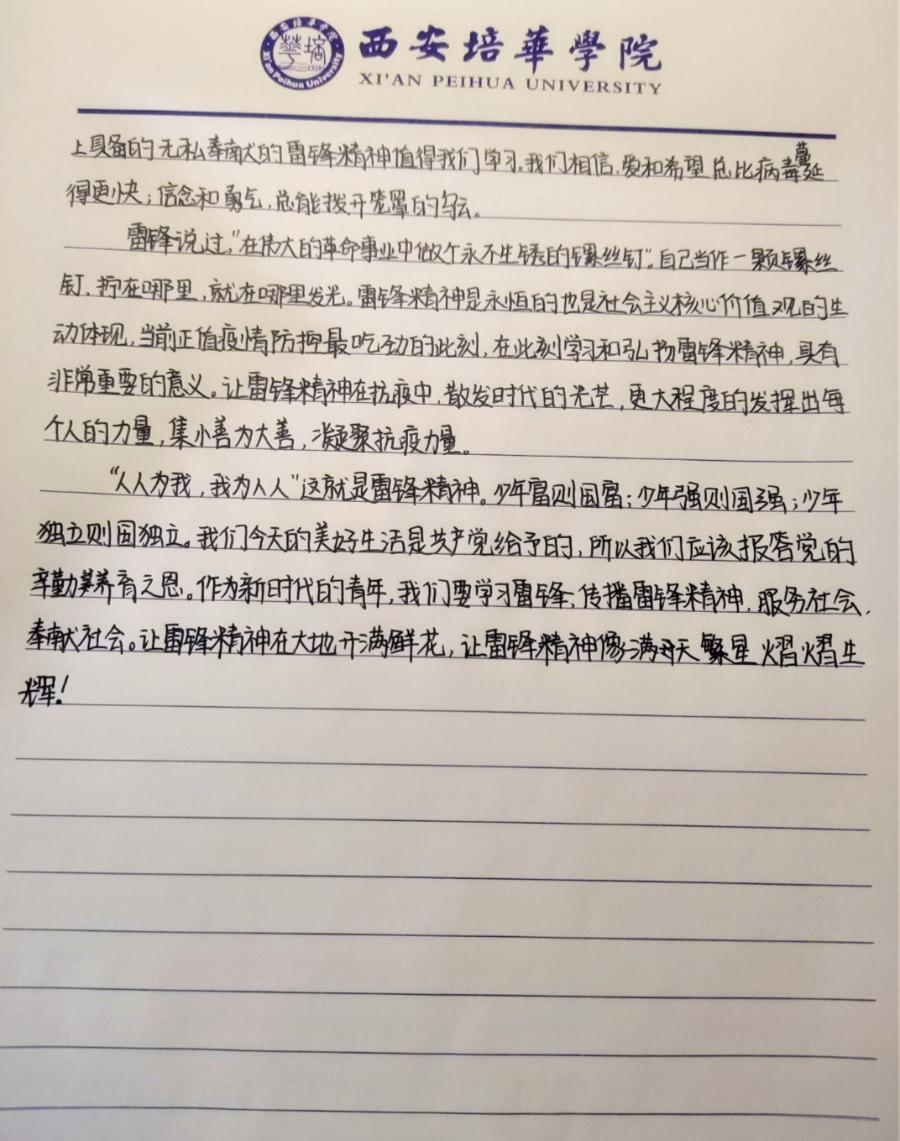 西安培華學院
XI'AN PEIHUA UNIVERSITY
西安培華學院
Xi'an Peihua University
1928
上具备的无私奉献的雷锋精神值得我们学习。我们相信,爱和希望总比病毒蔓延
得更快;信念和勇气,总能拨开笼罩的乌云。
雷锋说过,"在伟大的革命事业中做个永不生锈的镙丝钉"。自己当作一颗镙丝
钉,拧在哪里,就在哪里发光。雷锋精神是永恒的也是社会主义核心价值观的生
动体现,当前正值疫情防控最吃劲的此刻,在此刻学习和弘扬雷锋精神,具有
非常重要的意义。让雷锋精神在抗疫中,散发时代的光芒,更大程度的发挥出每
个人的力量,集小善为大善,凝聚抗疫力量。
"人人为我,我为人人"这就是雷锋精神。少年富则国富;少年强则国强;少年
独立则国独立。我们今天的美好生活是共产党给予的,所以我们应该报答党的
辛勤养育之恩。作为新时代的青年,我们要学习雷锋、传播雷锋精神,服务社会,
奉献社会。让雷锋精神在大地开满鲜花,让雷锋精神像满天繁星熠熠生
辉!